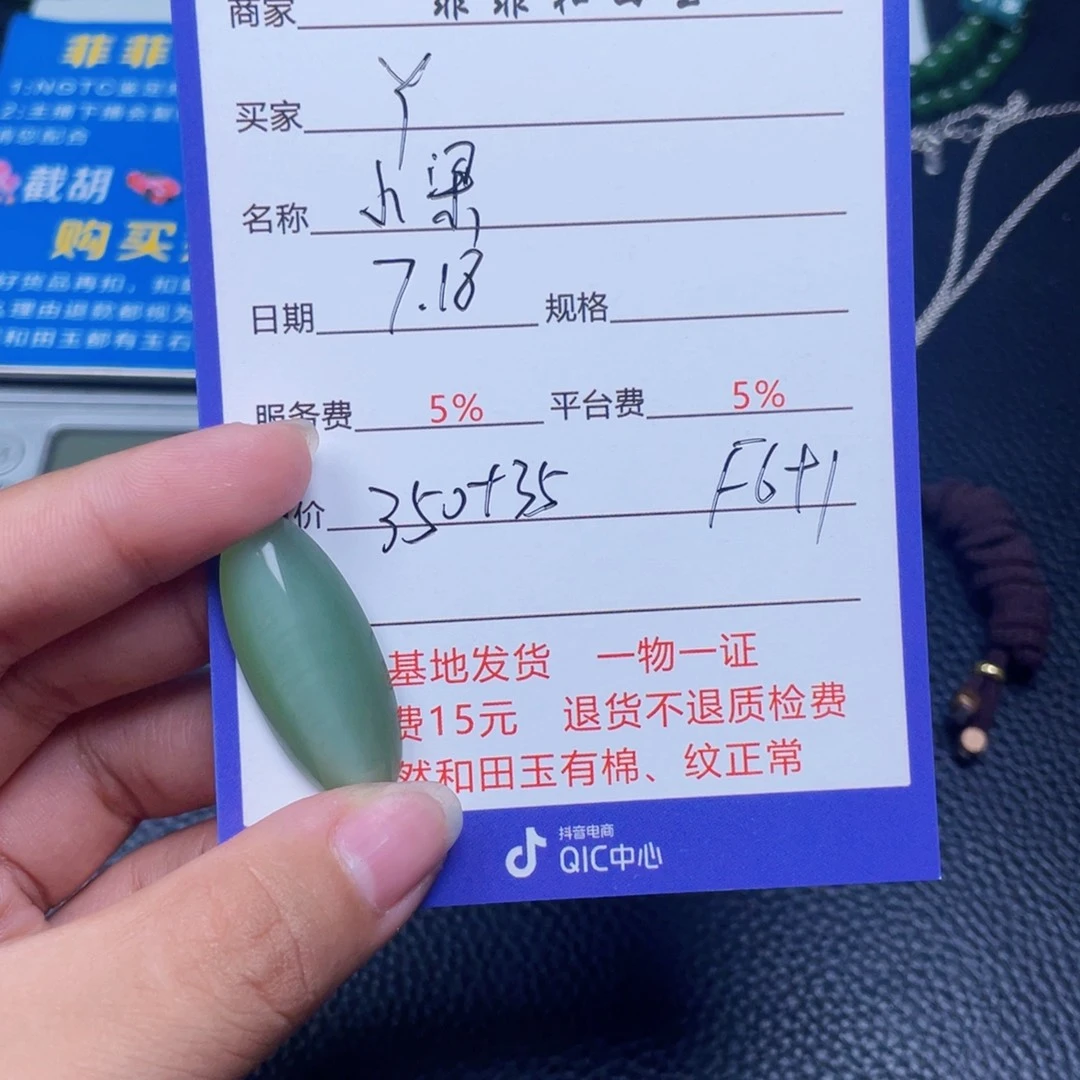 商家 菲菲和田玉
买家 Y
名称
日期 7.18 规格
服务费 5% 平台费 5%
价 350+35 F6+1
基地发货 一物一证
费15元 退货不退质检费
然和田玉有棉、纹正常
抖音电商
QIC中心
菲菲
1:NGTC鉴定
2:主播下播会
请您配合
截胡
购买
好货品再扣，扣
理由退款都视为
和田玉都有玉石